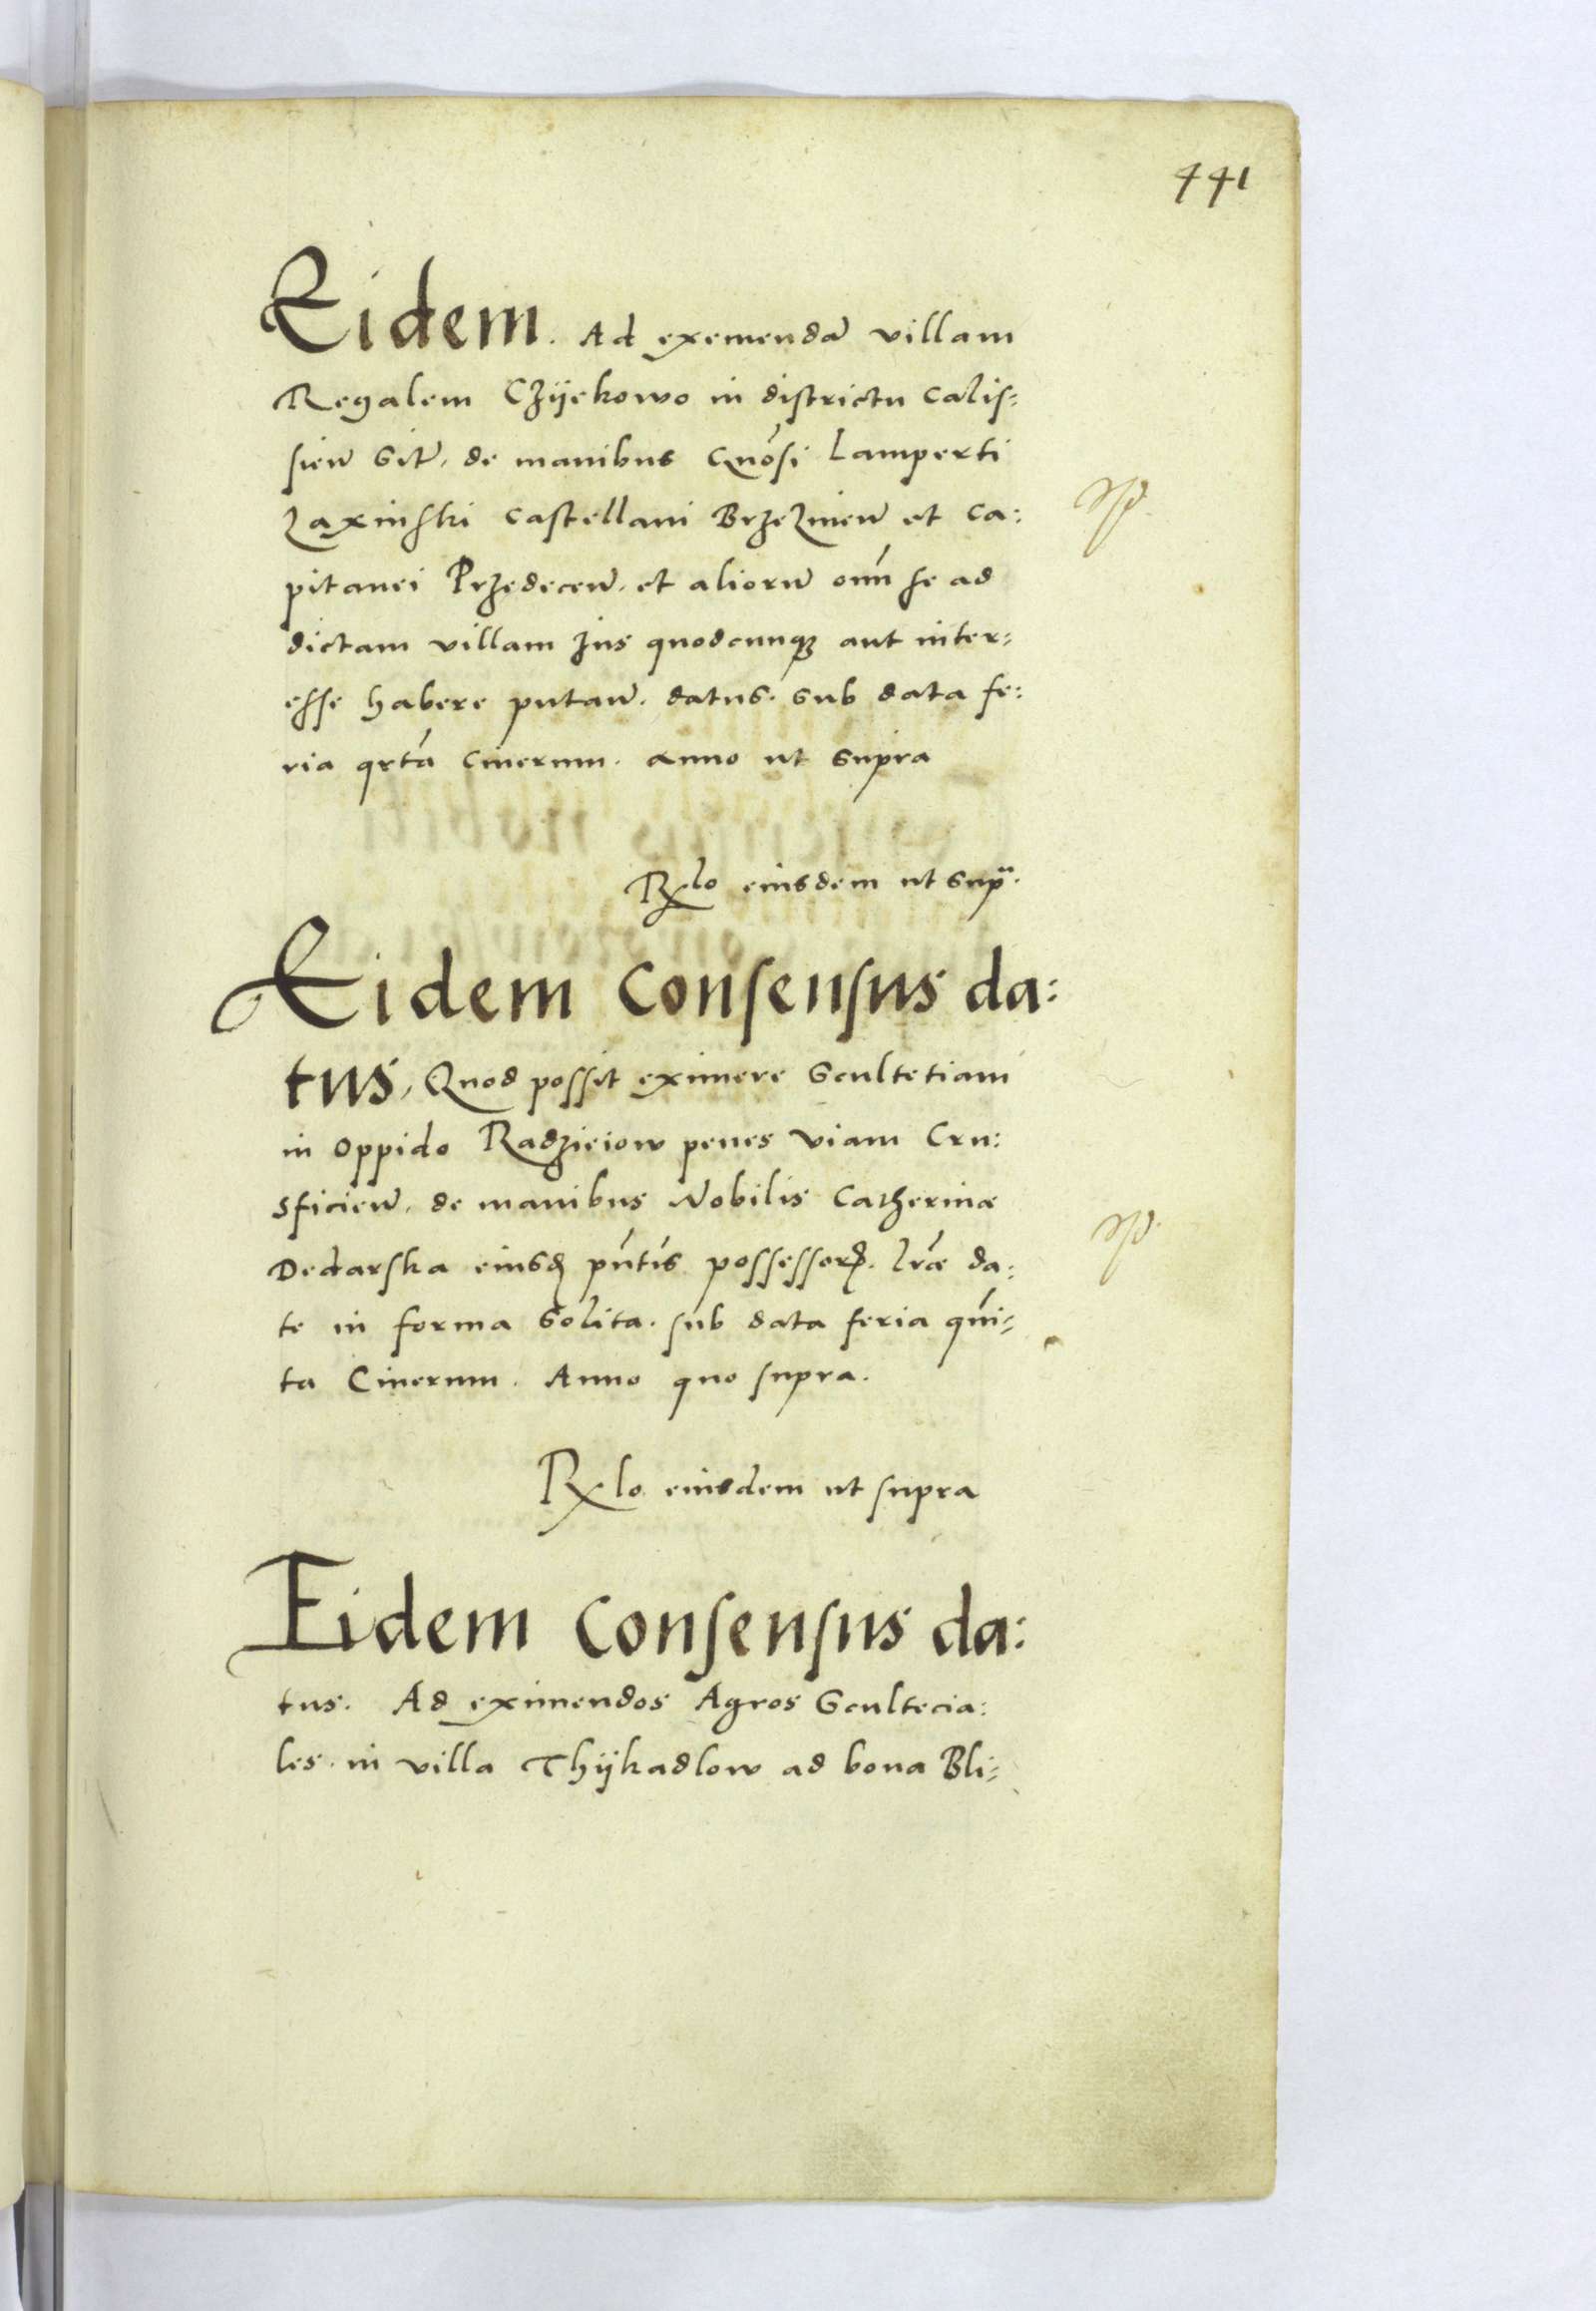 441
Eidem. Ad exemendā villam
Regalem Czÿekowo in districtu Calis=
sień sitū. de manibus Gnōsi Lamperti
Zaxinski castellani Brzezineń et Ca:
pitanei Przedeceń. et aliorū oīm se ad
dictam villam Jus quodcunqȝ aut inter=
esse habere putań. datus. sub data fe:
ria qrtā Cinerum. anno ut supra
Rlo eiusdem ut supª.
Eidem Consensus da:
tus, Quod possit eximere Scultetiam
in oppido Radzieiow penes viam Cru:
sficień. de manibus Nobilis Catherinæ
Dedarska eiusd pn̄tis possessor. lræ da:
te in forma solita. sub data feria quī=
ta Cinerum. Anno quo supra.
Rlo eiusdem ut supra
Eidem Consensus da:
tus. Ad eximendos Agros Scultecia:
les in villa Thÿkadlow ad bona Bli=